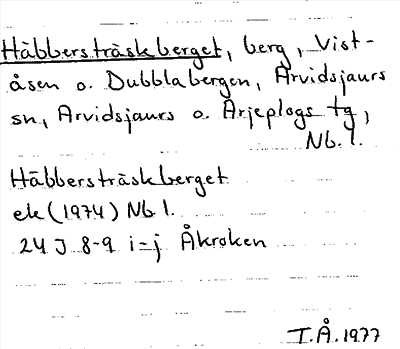 Häbbersträskberget, berg, Vist-
åsen o. Dubblabergen, Arvidsjaurs
sn, Arvidsjaurs o. Arjeplogs tg,
Nb. l.
Häbbersträskberget
ek (1974) Nb l.
24 J 8-9 i-j Åkroken
T.Å. 1977